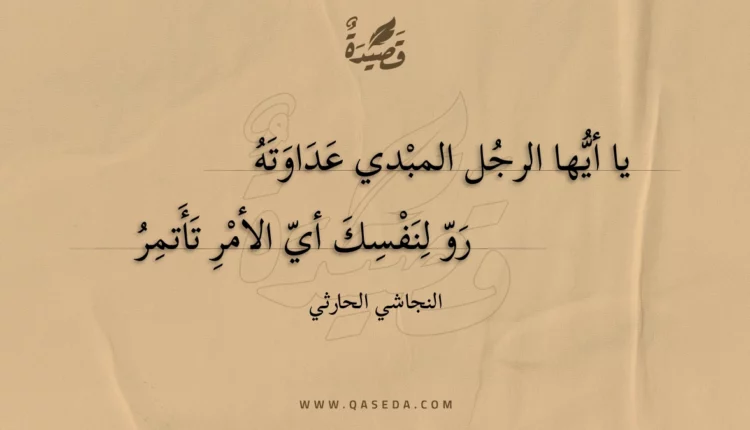 قَصِيدَةٌ
يا أيُّها الرجُل المبْدي عَدَاوَتَهُ
رَوّ لِنَفْسِكَ أيّ الأمْرِ تَأَتمِرُ
النجاشي الحارثي
WWW.QASEDA.COM